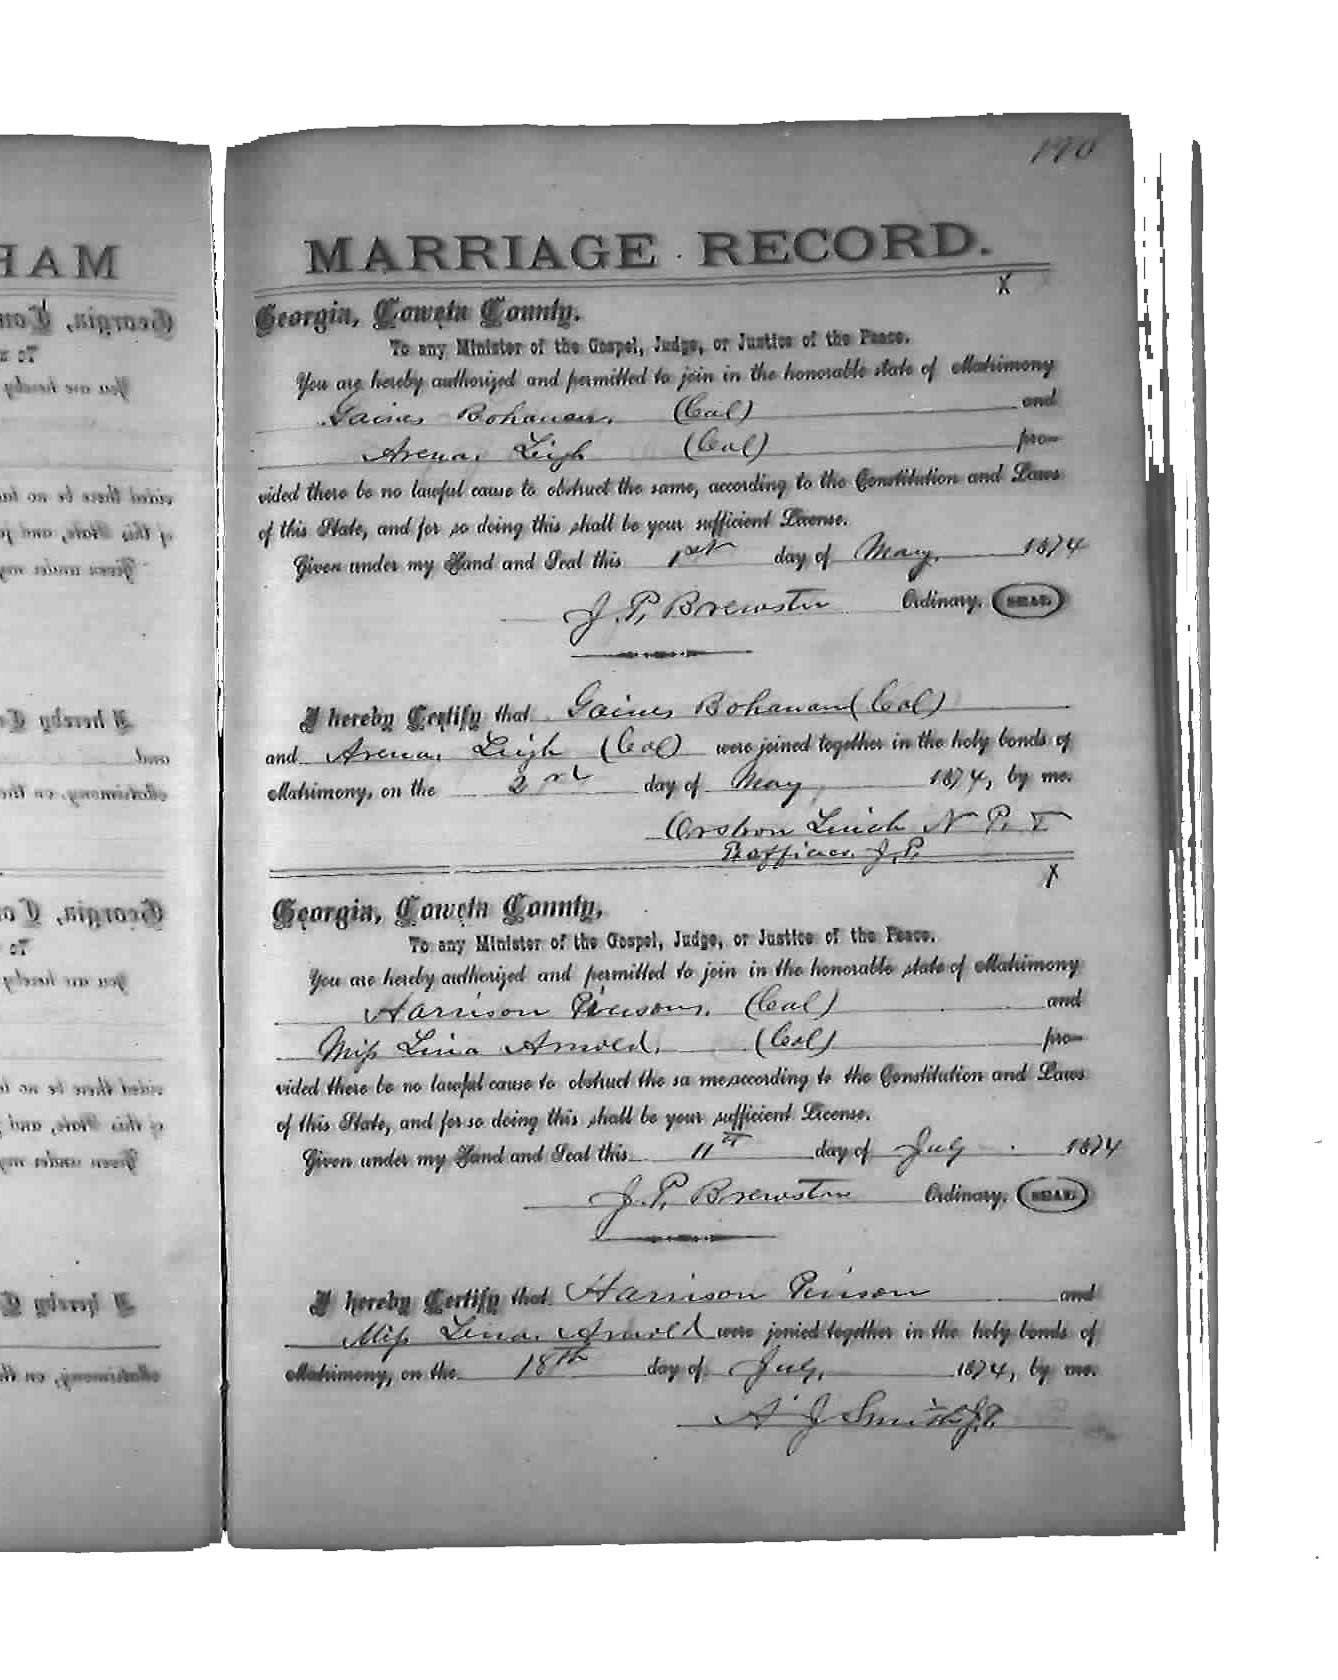 190
MARRIAGE RECORD.
X
Georgia, Coweta County.
To any Minister of the Gospel, Judge, or Justice of the Peace.
You are hereby authorized and permitted to join in the honorable state of Matrimony
Gaines Bohanan. (Col) and
Arena. Leigh (Col) pro-
vided there be no lawful cause to obstruct the same, according to the Constitution and Laws
of this State, and for so doing this shall be your sufficient License.
Given under my Hand and Seal this 1st day of May. 1874
J. P. Brewster Ordinary. SEAL.
I hereby Certify that Gaines Bohanan (Col)
and Arena. Leigh (Col) were joined together in the holy bonds of
Matrimony, on the 2nd day of May, 1874, by me.
N. P. &
Exofficio. J. P.
X
Georgia, Coweta County,
To any Minister of the Gospel, Judge, or Justice of the Peace.
You are hereby authorized and permitted to join in the honorable state of Matrimony
Harrison Pinson. (Col) and
Miss Lina Arnold. (Col) pro-
vided there be no lawful cause to obstruct the sa me,according to the Constitution and Laws
of this State, and for so doing this shall be your sufficient License.
Given under my Hand and Seal this 11th day of July 1874
J. P. Brewster Ordinary. SEAL.
I hereby Certify that Harrison Pinson and
Miss Lina. Arnold were jonied together in the holy bonds of
Matrimony, on the 18th day of July, 1874, by me.
A J Smith J.P.